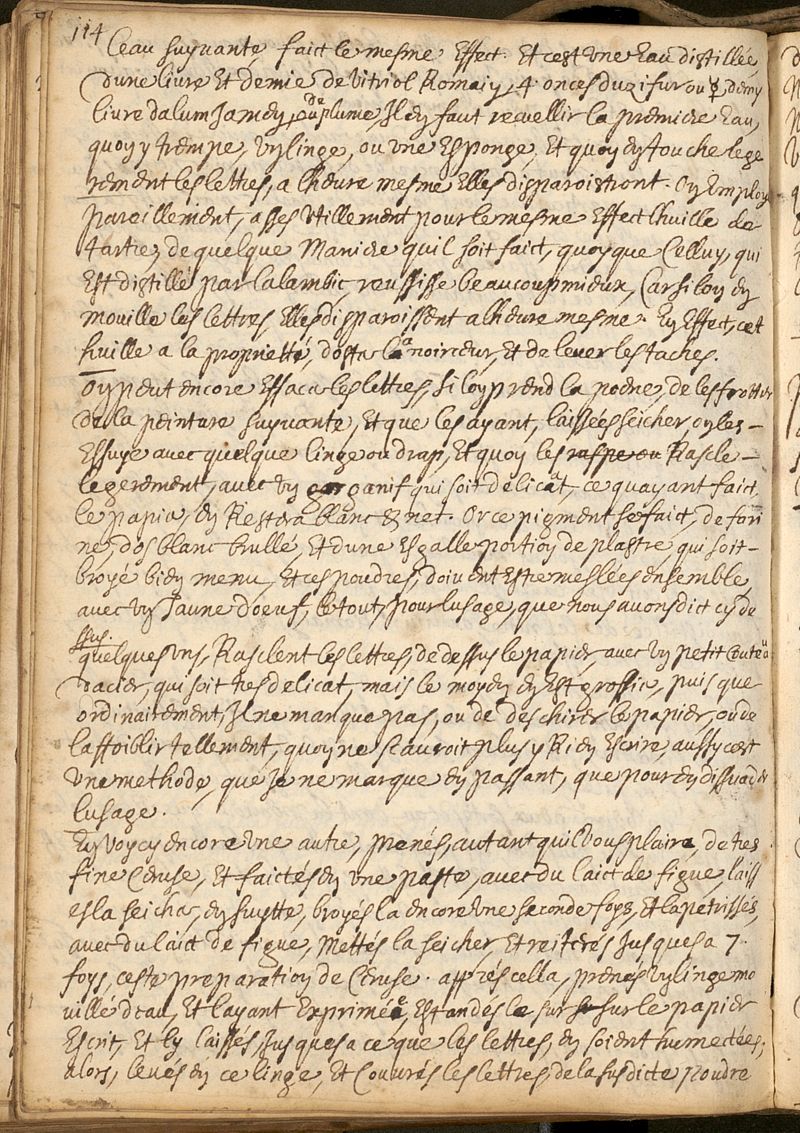 114
Leau suyuante, faict le mesme Effect. Et cest vne Eau distillée,
dune liure Et demie de vitriol Romain, 4 onces du zifur ou ☿, demy
liure dalum Jamen, ou de plume, Il en faut recuellir la premiere Eau,
quoy y trempe, vn linge, ou vne Esponge, Et quoy en touche lege
rement les lettres, a lheure mesme Elles disparoistront. On Employ
pareillement, asses vtillement pour le mesme Effect lhuille de
tartre, de quelque maniere quil soit faict, quoyque Celluy, qui
Est distillé par lalambic, reussisse beaucoup mieux, Car si lon en
mouille les lettres, Elles disparoissent a lheure mesme. En Effect, cet
huille a la proprietté, doster la noirceur, Et de leuer les taches.
On peut encore Effacer les lettres, si lon prend la pene, de les frotter
de la peinture suyuante, Et que les ayant, laissées seicher on les
Essuye auec quelque linge ou drap, Et quoy les raspe ou Rascle
legerement, auec vn ganif qui soit delicat, ce quayant faict,
le papier, en Restera blanc & net. Or ce pigment se faict, de fari
ne, dos blanc brullé, Et dune Esgalle portion de plastre, qui soit
broyé bien menu, Et ces poudres, doiuent Estre meslées ensemble,
auec vn Jaune doeuf, le tout, pour lusage, que nous auons dict cy de
ssus.
quelques vns, Rasclent les lettres, de dessus le papier, auec vn petit couteau
dacier, qui soit tres delicat, mais le moyen en Est grossier, puis que
ordinairement, Il ne manque pas, ou de deschirer le papier, ou de
laffoiblir tellement, quoy ne scauroit plus y Rien Escrire, aussy cest
vne methode, que Je ne marque en passant, que pour en dissuader
lusage.
En voycy encore vne autre, prenés, autant quil vous plaira, de tres
fine Ceruse, Et faictés en vne paste, auec du laict de figue, laiss
es la seicher, en suytte, broyés la encore vne seconde foys, Et la petrissés,
auec du laict de figue, mettés la seicher, Et reiterés Jusques a 7.
foys, ceste preparation de Ceruse. apprés cella, prenés vn linge mo
uillé deau, Et layant Exprimée, Estandés le sur sur le papier
Escrit, Et ly laissés Jusques a ce que les lettres, en soient humectées,
alors, leués en ce linge, Et Couurés les lettres, de la susdicte poudre